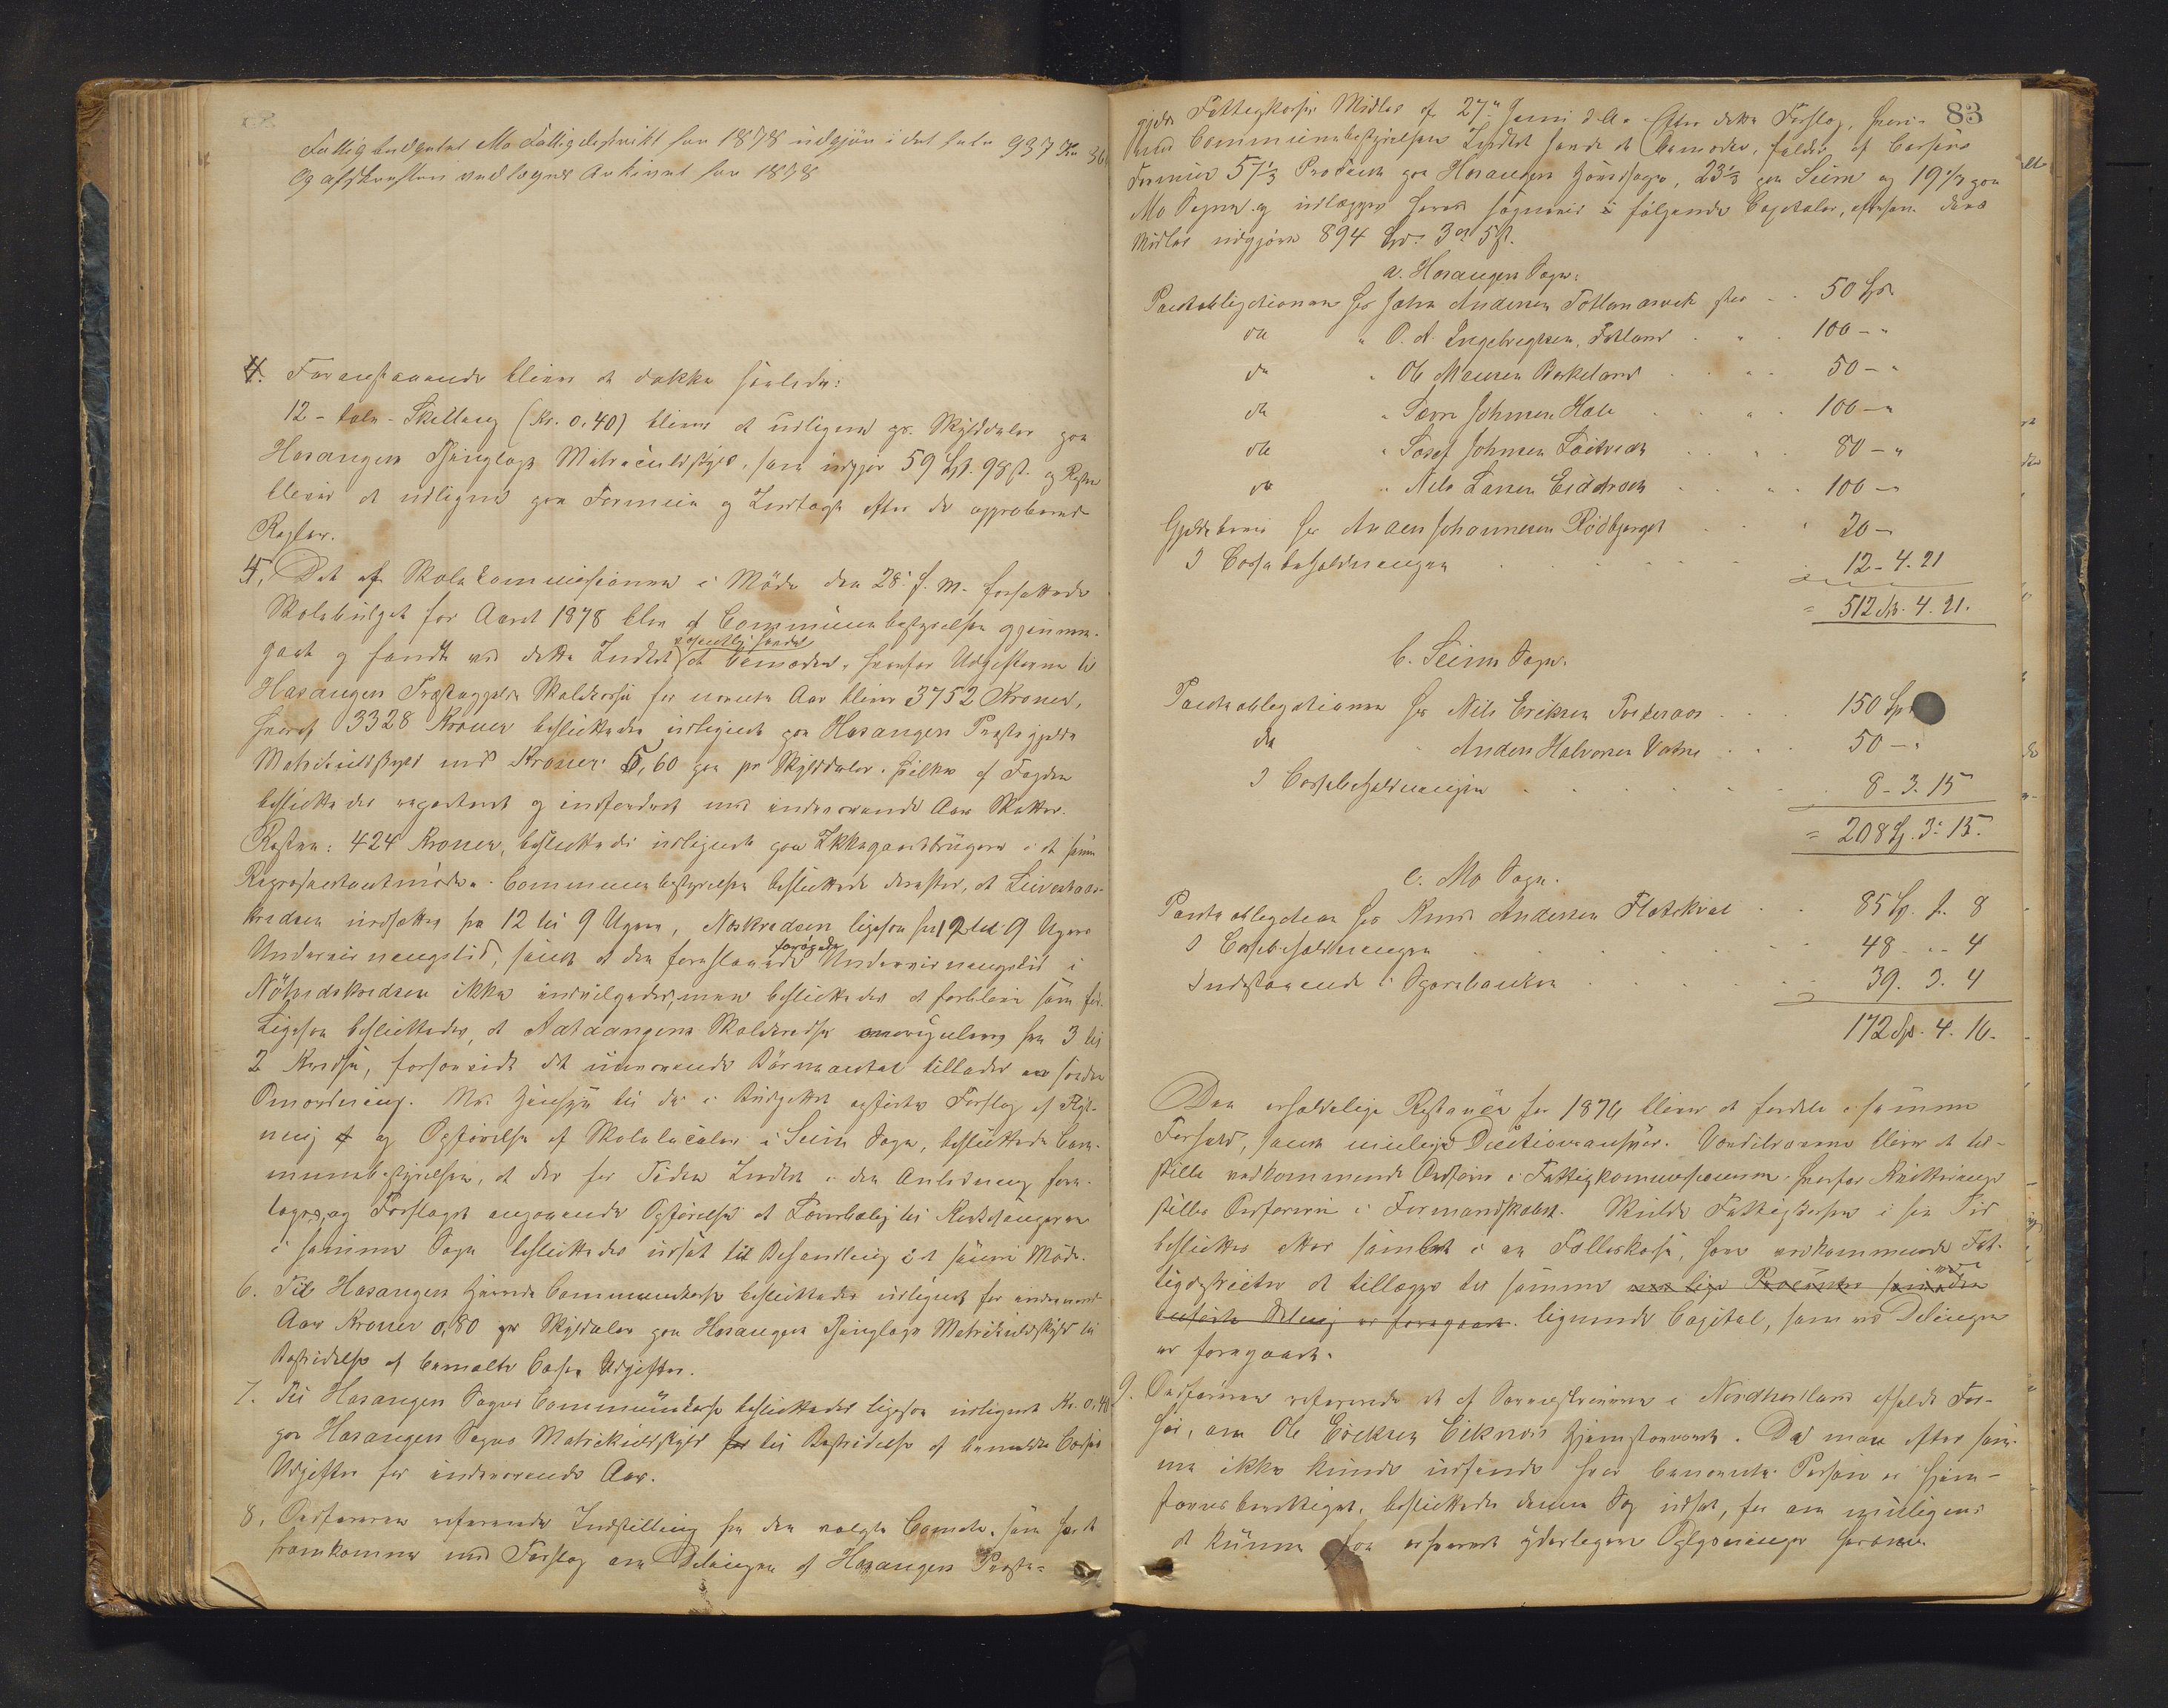 Fattigbudgetet Mo Fattigdistrikt for 1878 udgjør i det hele 937 Kr 36
Og afskreften vedlægges Arkivet for 1878
4. Foranstaaende bliver at dække saaledes:
12 - tolv - Skilling (Kr. 0,40) bliver at udligne pr. Skylddaler paa
Hosangers Thinglags Matriculskyld, som udgjør 59 Spd. 98 s. og Resten
bliver at udligne paa Formue og Indtægt efter de approberede
Regler.
5. Det af Skolekommissionen i Møde den 28. f. M. forfattede
Skolebudget for Aaret 1878 blev af Communebestyrelsen gjennem-
gaaet og fandt ved dette Intet væsentligt herved at bemærke, hvorfor Udgifterne til
Hosangers Præstegjelds Skolekasse for nævnte Aar bliver 3752 Kroner,
hvoraf 3328 Kroner besluttedes udlignet paa Hosangers Præstegjelds
Matrikulskyld med Kroner 5,60 paa pr Skylddaler, hvilke af Fogden
besluttedes repartert og indfordret med indeværende Aars Skatter.
Resten: 424 Kroner, besluttedes udlignet paa Ikkegaardbrugere i et senere
Repræsentantmøde. Communebestyrelsen besluttede derefter, at
Kredsen nedsættes fra 12 til 9 Uger, Noskredsen ligesaa fra 12 til 9 Ugers
Undervisningstid, samt at den foreslaaede forøgede Undervisningstid i
Nøtvedskredsen ikke indvilgedes, men besluttedes at forblive som før.
Ligesaa besluttedes, at Aataangens Skolekredse omreguleres fra 3 til
2 Kredse, forsaavidt det nuværende Børneantal tillader en saadan
Omordning. Med Hensyn til de i Budgettet opførte Forslag af Kjøb-
ning og Opførelse af Skolelocaler i Seim Sogn, besluttede Com-
munebestyrelsen, at der for Tiden Intet i den Anledning fore-
toges, og Forslaget angaaende Opførelse af
i samme Sogn besluttedes udsat til Behandling i et senere Møde.
6. Til Hosangers Herreds Communekasse besluttedes udlignet for indeværende
Aar Kroner 0,80 pr Skylddaler paa Hosangers Thinglags Matrikulskyld til
Bestridelse af bemeldte Casses Udgifter.
7. Til Hosangers Sogns Communekasse besluttedes ligesaa udlignet Kr. 0,40
paa Hosangers Sogns Matrickulskyld til Bestridelse af bemeldte Casses
Udgifter for indeværende Aar.
8. Ordføreren refererede Indstilling fra den valgte Comite, som havde
fremkommet med Forslag om Delingen af Hosangers Præste-
83
gjelds Fattigkasses Midler af 27. Juni d. A. Efter dette Forslag, hvori-
mod Communebestyrelsen Intet havde at bemærke, falder af Cassens
Formue 57 1/3 Procent paa Hosangers Hovedsogn, 23 1/3 paa Seim og 19 1/3 paa
Mo Sogn og udlægges hvert Sognevis følgende Capitaler, eftersom dens
Midler udgjøre 894 Spd. 3 ort 5 s.
a. Hosangers Sogn:
Pantobligationen fra John Andersen Totlandsvik stor 50 Spd
do " O. A. Ingebregtsen, Fotland " 100 - "
do " Ole Monsen Birkeland " 50 - "
do " Sævre Johnsen Hole " 100 - "
do " Josef Johnsen 80 - "
do " Nils Larsen " 100 -
Gjeldsbrev fra Anders Johannesen Rødbjerget " 20 -
I Cassebeholdningen 12 - 4. 21
= 512 Sp. 4. 21.
b. Seims Sogn.
Pantobligationen fra Nils Eriksen 150 Spd
do " Anders Halvorsen Vatne 50 - "
I Cassebeholdningen 8 - 3. 15
= 208 Sp. 3. 15.
c. Mo Sogn.
Pantobligation fra Knud Andersen Flatekval 85 Sp. 8
I Cassebeholdningen 48 - " - 4
Indestaaende i Sparebanken 39. 3. 4
172 Sp. 4. 16.
Den erholdelige Restance for 1876 bliver at fordele i samme
Forhold, samt mulige Decisionsansvar. Værdibrevene bliver at til-
stille vedkommende Ordfører i Fattigkommissionen, hvorfor Kvittering
stilles Ordføreren i Formandskabet. Skulde Fattigkassen i sin Tid
besluttes atter samlet i en Fælleskasse, have vedkommende Fat-
tigdistricter at tillægge til samme
lignende Capital, som ved Delingen
er foregaaet.
9. Ordføreren refererede et af Sorenskriveren i Nordhordland afholdt For-
hør, om Ole Ericksen Eiknes Hjemstavnsret. Da man efter sam-
me ikke kunde udfinde hvor benævnte Person er hjem-
stavnsberettiget, besluttedes denne Sag udsat, for om muligens
at kunne faa erhvervet yderligere Oplysninger herom.